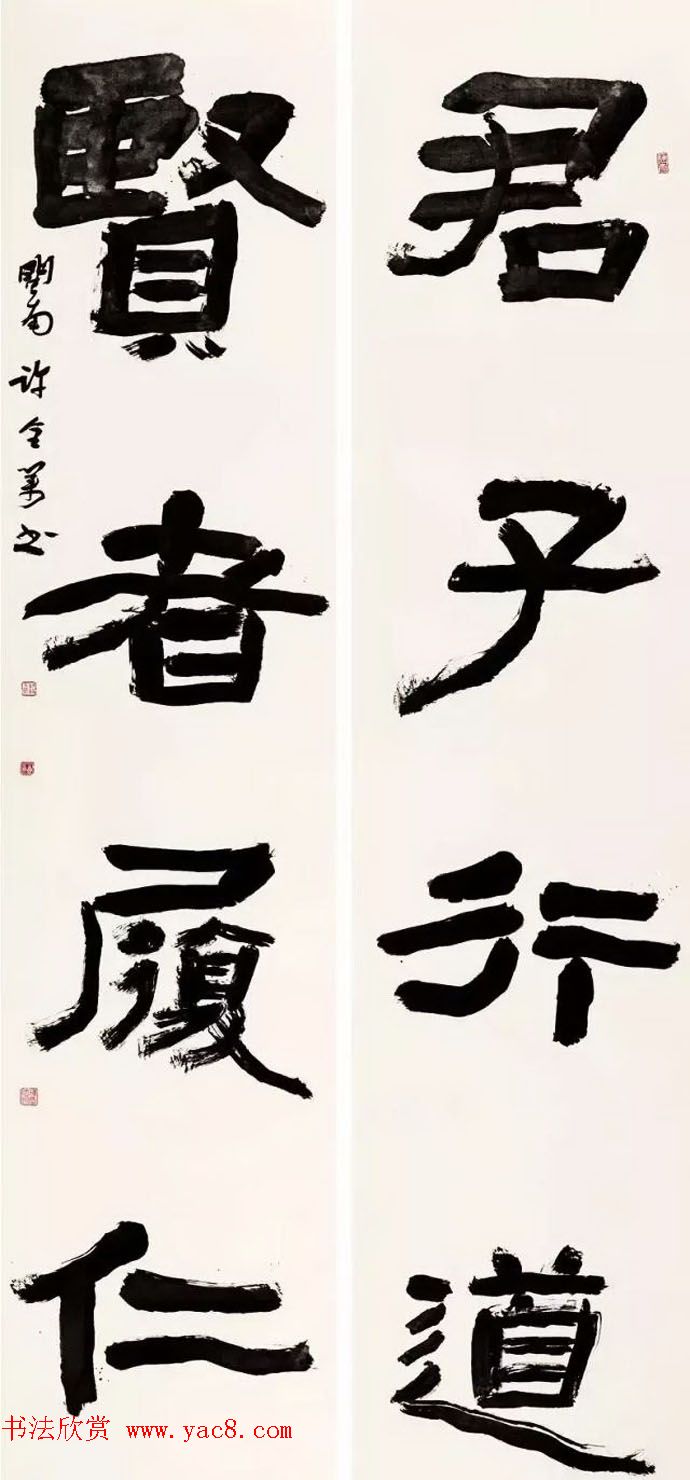 君子行道
賢者履仁
閩南許全義书
书法欣赏 www.yac8.com